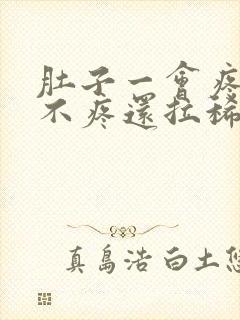 肚子一會疼
不疼還拉稀
真島浩 白土悠